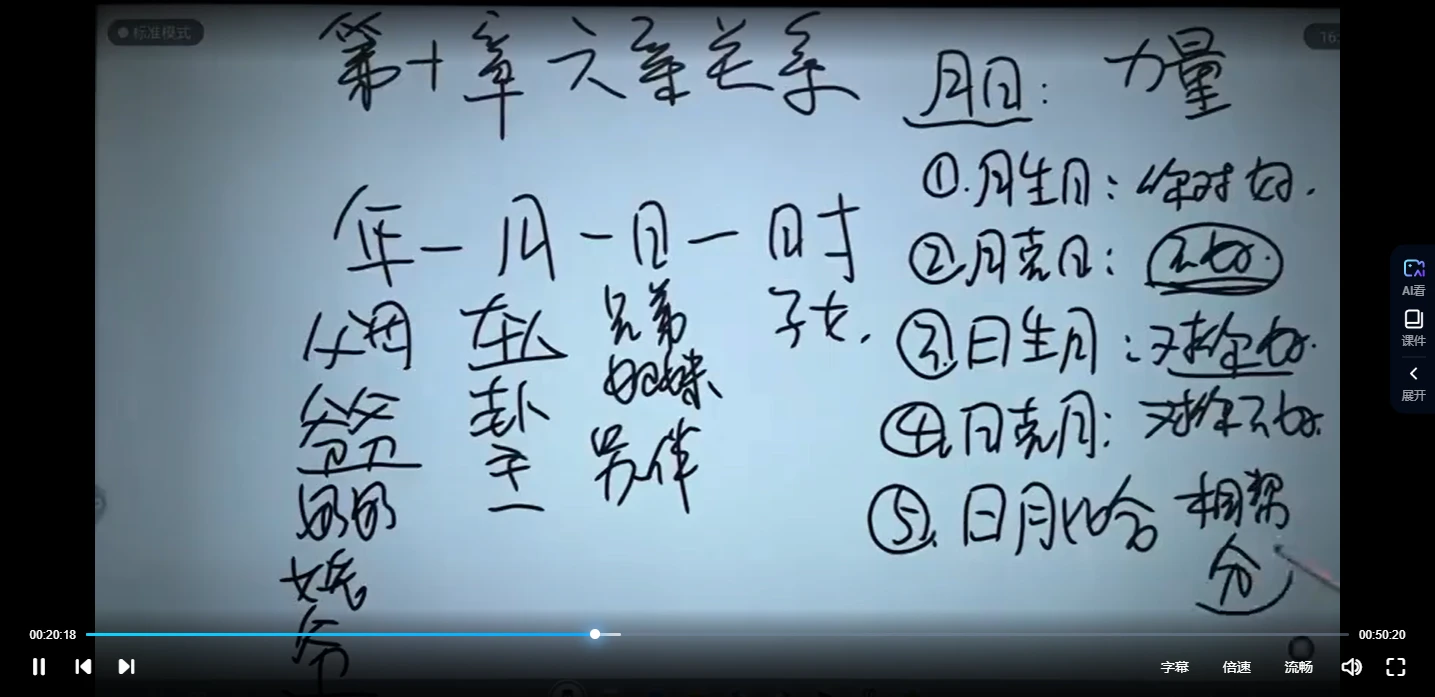 标准模式
16:
第十章六亲关系
年一月一日一时
父母
爷爷
奶奶
兄弟
姐妹
另伴
子女.
月日: 力量
①.月生日: 你对 好.
②月克日: 不好.
③.日生月: 对你好.
④.日克月: 对你不好.
⑤.日月比合 相帮
AI看
课件
展开
00:20:18
00:50:20
字幕
倍速
流畅